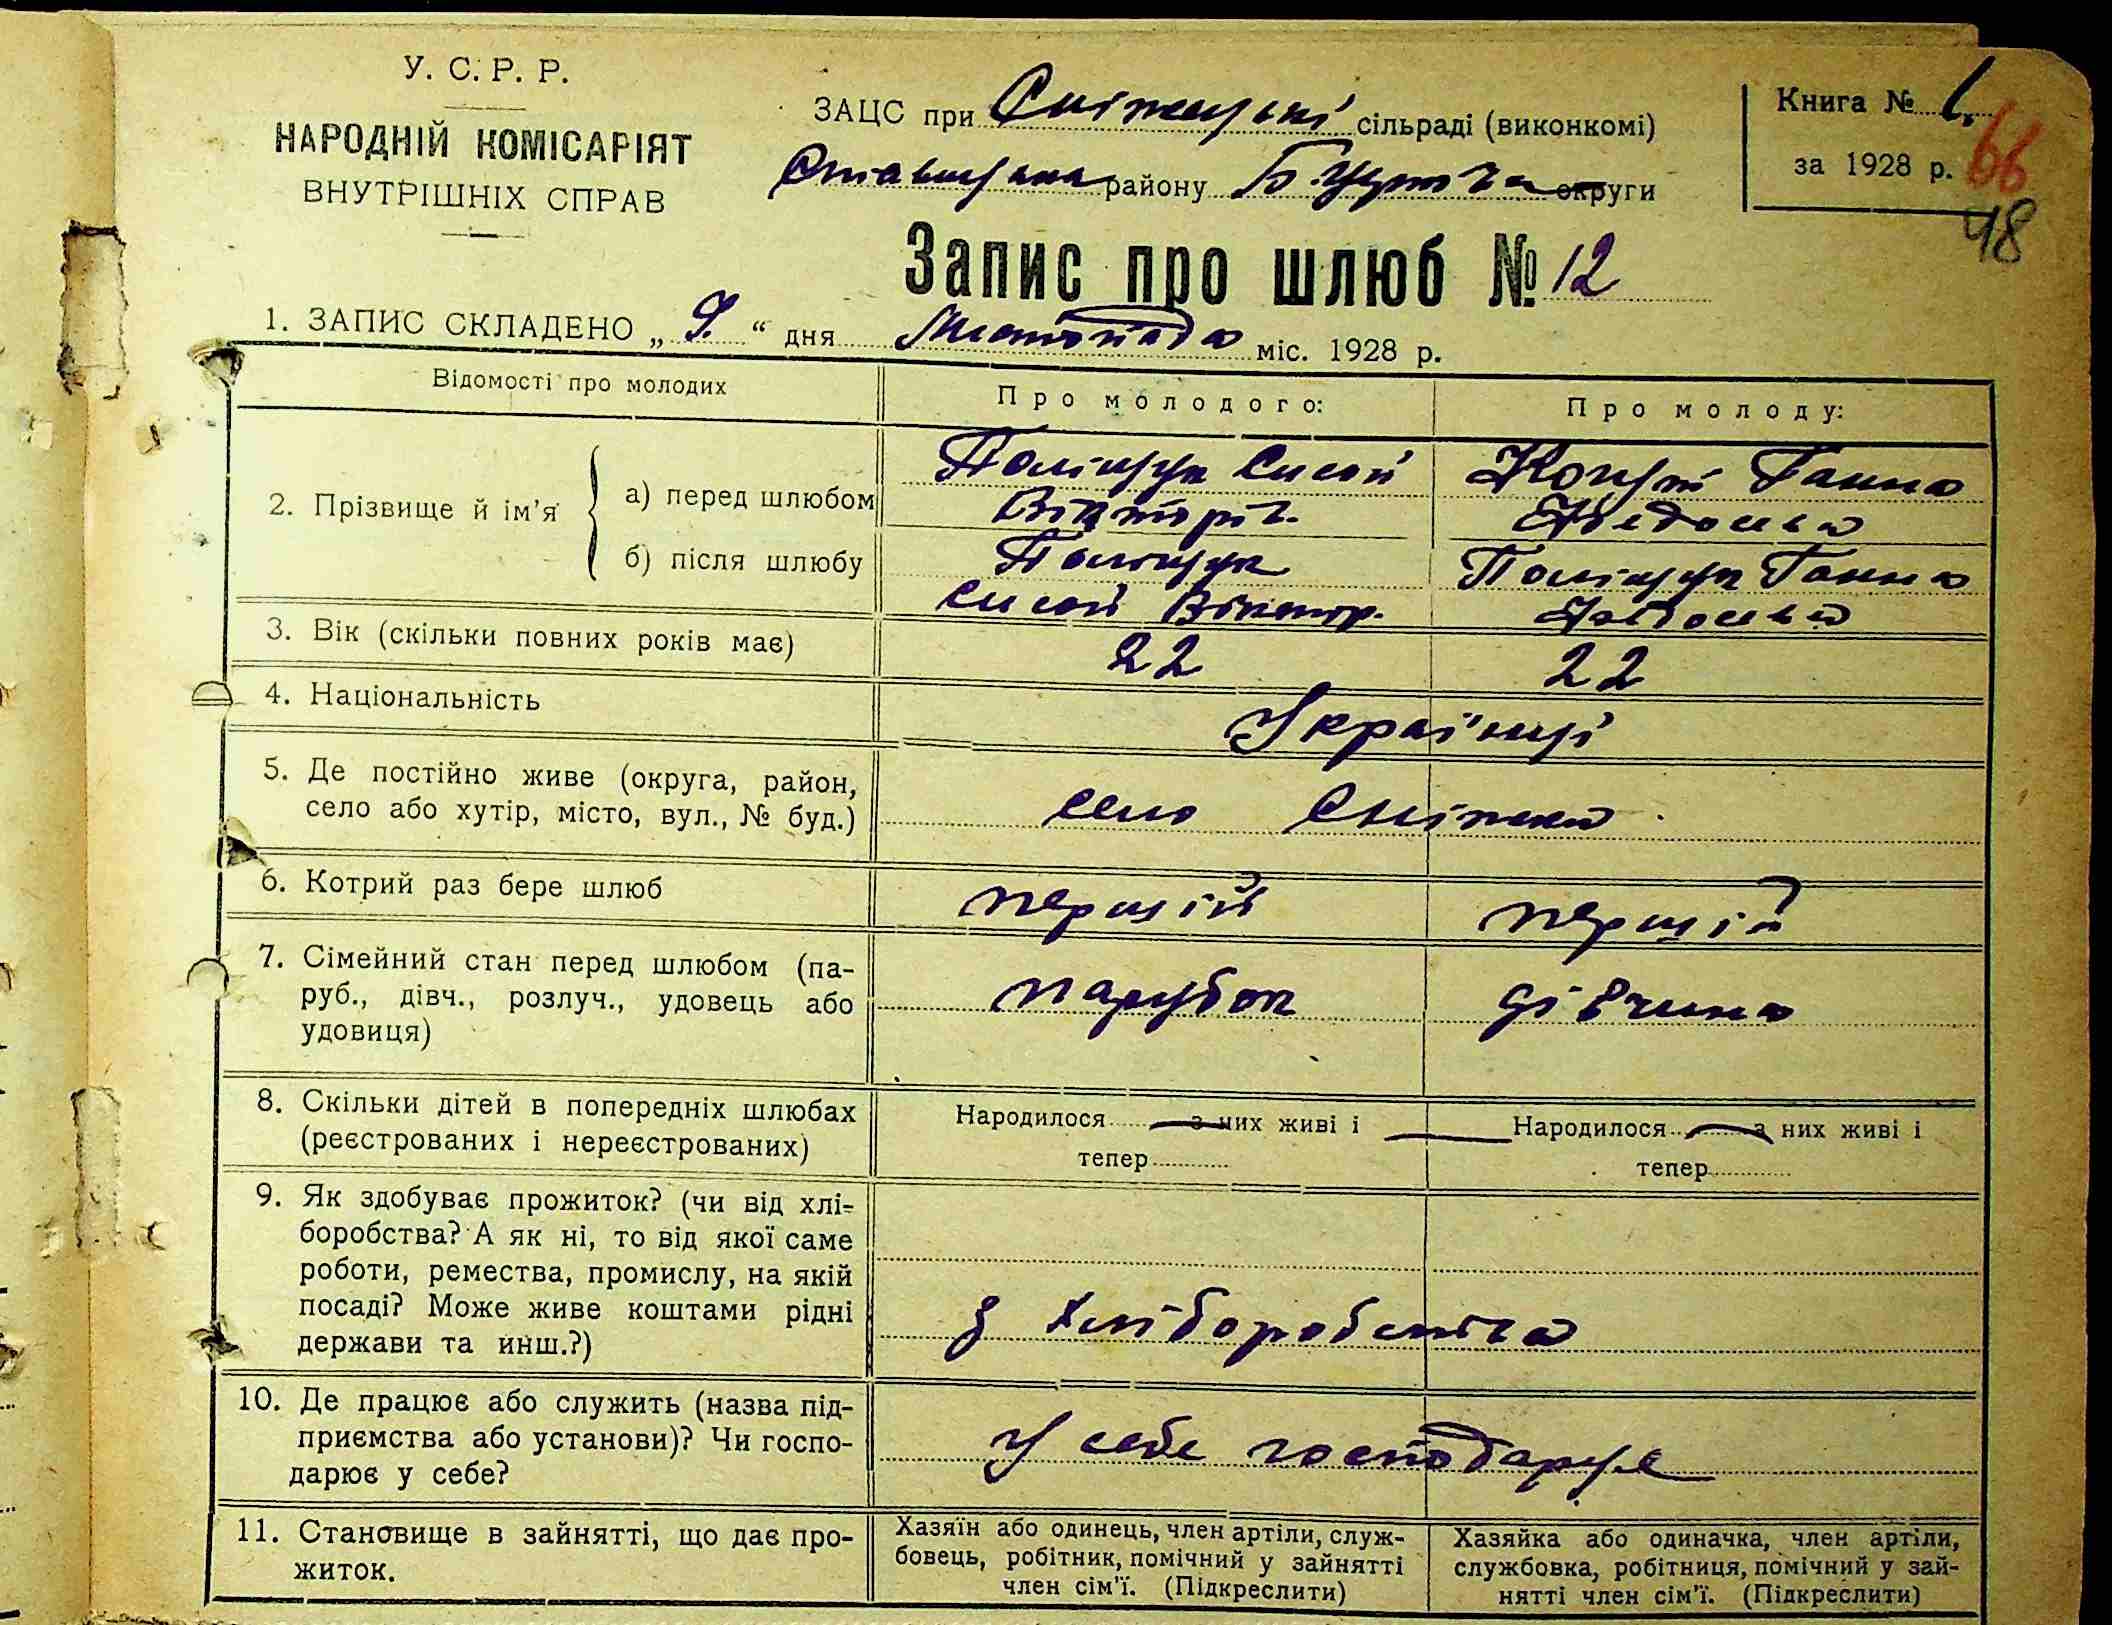 У. С. Р. Р.
НАРОДНІЙ КОМІСАРІЯТ
ВНУТРІШНІХ СПРАВ
ЗАЦС при Сніжецькі сільраді (виконкомі)
району Б. Церкв. округи
Книга № 1.
за 1928 р.
66
48
Запис про шлюб № 12
1. ЗАПИС СКЛАДЕНО „ 9. “ дня Листопада міс. 1928 р.
Відомості про молодих
Про молодого:
Про молоду:
2. Прізвище й ім’я
а) перед шлюбом
Поліщук Сисой
Вікторів.
Ганна
Федосієва
б) після шлюбу
Поліщук
Сисой Віктор.
Поліщук Ганна
3. Вік (скільки повних років має)
22
22
4. Національність
Українці
5. Де постійно живе (округа, район,
село або хутір, місто, вул., № буд.)
село Сніжки
6. Котрий раз бере шлюб
перший
перший
7. Сімейний стан перед шлюбом (па-
руб., дівч., розлуч., удовець або
удовиця)
парубок
дівчина
8. Скільки дітей в попередніх шлюбах
(реєстрованих і нереєстрованих)
Народилося з них живі і
тепер
Народилося з них живі і
тепер
9. Як здобуває прожиток? (чи від хлі-
боробства? А як ні, то від якої саме
роботи, ремества, промислу, на якій
посаді? Може живе коштами рідні
держави та инш.?)
з хліборобства
10. Де працює або служить (назва під-
приємства або установи)? Чи госпо-
дарює у себе?
у себе господарує
11. Становище в зайнятті, що дає про-
житок.
Хазяїн або одинець, член артіли, служ-
бовець, робітник, помічний у зайнятті
член сім’ї. (Підкреслити)
Хазяйка або одиначка, член артіли,
службовка, робітниця, помічний у зай-
нятті член сім’ї. (Підкреслити)